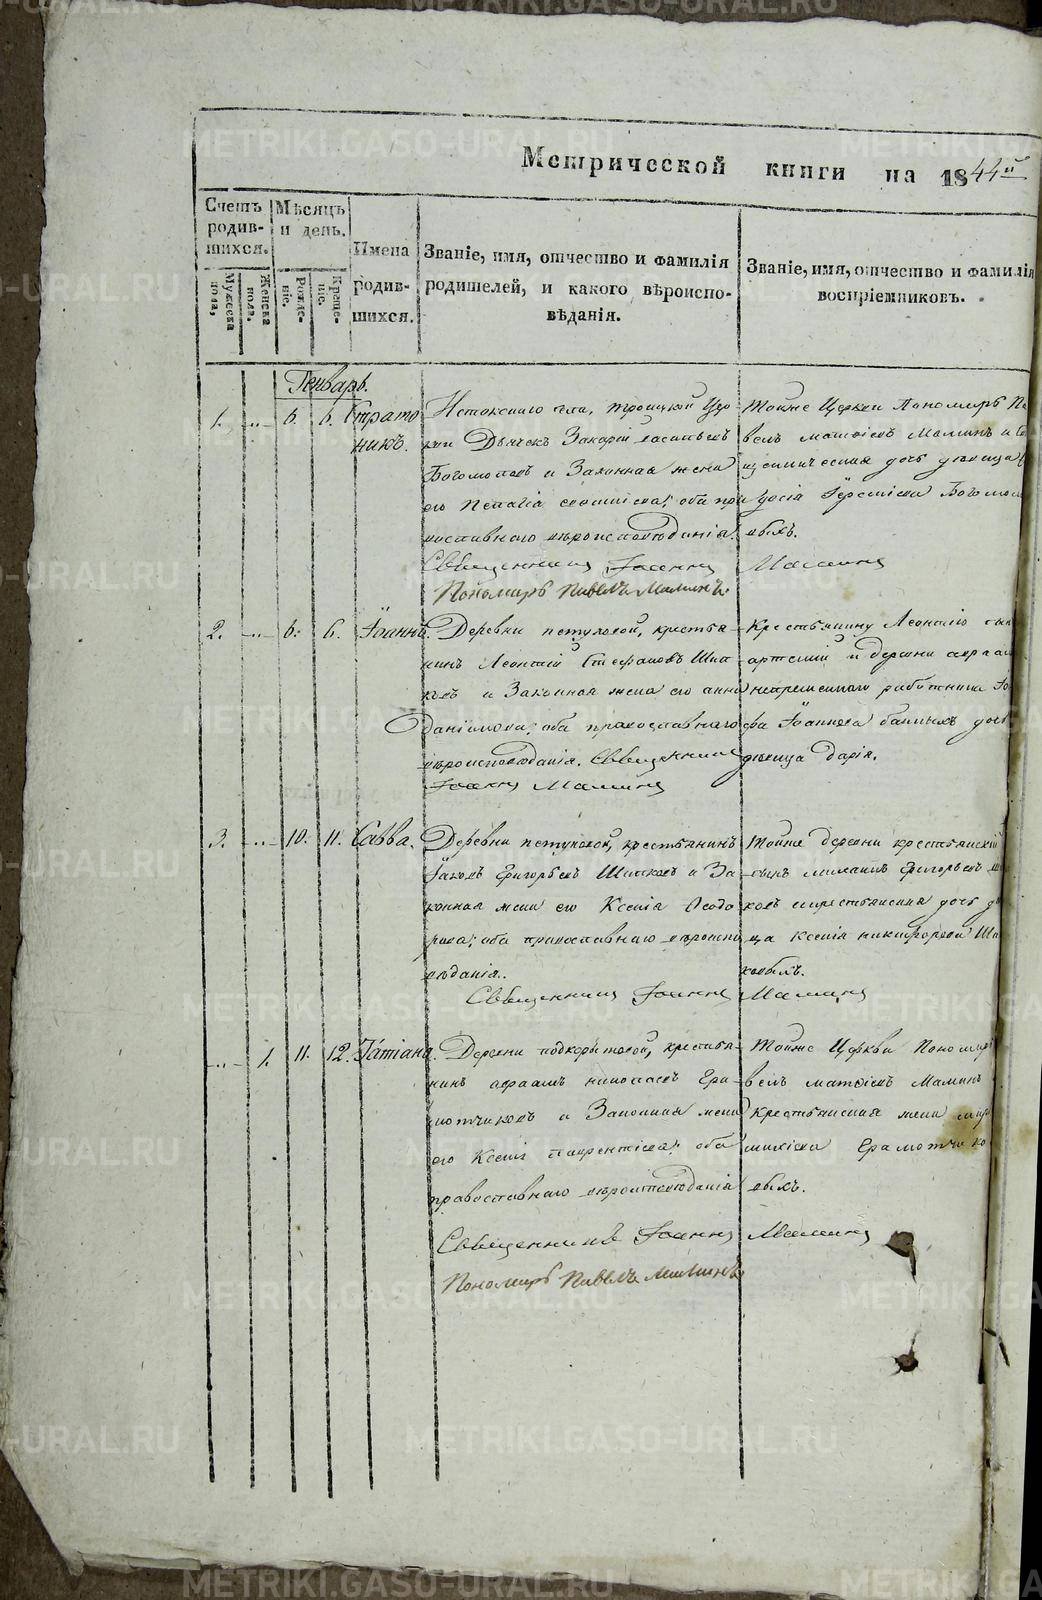 Метрической книги на 1844й
Счетъ родив-шихся.
Мужеска пола,
Женска пола.
Мѣсяцъ и день.
Рожде-ніе.
Креще-ніе.
Имена родив-шихся.
Званіе, имя, отчество и фамилія
родителей, и какого вѣроиспо-
вѣданія.
Званіе, имя, отчество и фамилія
воспріемниковъ.
Генварь.
1. 6. 6. Страто
никъ.
Истокскаго села, Троицкой Цер
кви Дьячекъ Захарій Васильевъ
Богомоловъ и Законная жена
его Пелагія оба пра
вославнаго вѣроисповѣданія.
Священникъ Іоаннъ Маминъ
Пономарь Павелъ Маминъ.
Тойже Церкви Пономарь Па
велъ Матѳіевъ Маминъ и
дочь дѣвица
Богомол
овыхъ.
2. 6. 6. Іоаннъ.
Деревни Петуховой, крестья
нинъ Леонтій Стефановъ
и Законная жена его Анна
Даніилова; оба православнаго
вѣроисповѣданія. Священникъ
Іоаннъ Маминъ
Крестьянину Леонтію сынъ
Артемій и деревни
непременнаго работника
Іоаннова дочь
дѣвица Дарія.
3. 10. 11. Савва.
Деревни Петуховой, крестьянинъ
Іаковъ Григорьевъ и За
конная жена его Ксенія Ѳеодо
рова; оба православнаго вѣроиспо
вѣданія.
Священникъ Іоаннъ Маминъ
Тойже деревни крестьянскій
сынъ Григорьевъ
ковъ и крестьянская дочь дѣ
ца Ксенія Никифорова
ковыхъ.
1. 11. 12. Татіана.
Деревни Подкорытовой, крестья
нинъ Авраамъ Гра
мотчиковъ и Законная жена
его Ксенія Лаврентіева; оба
православнаго вѣроисповѣданія
Священникъ Іоаннъ Маминъ
Пономарь Павелъ Маминъ
Тойже Церкви Пономарь
велъ Матѳіевъ Маминъ
Крестьянская жена
Грамотчико
выхъ.
METRIKI.GASO-URAL.RU